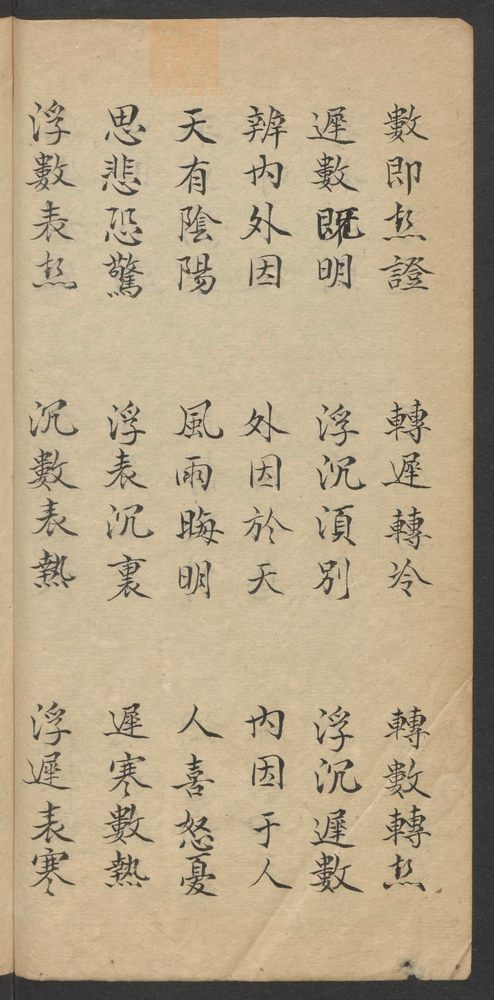 數即热證 轉遲轉冷 轉數轉热
遲數既明 浮沉須別 浮沉遲數
辨内外因 外因於天 内因于人
天有陰陽 風雨晦明 人喜怒憂
思悲恐驚 浮表沉裏 遲寒數熱
浮數表热 沉數表熱 浮遲表寒